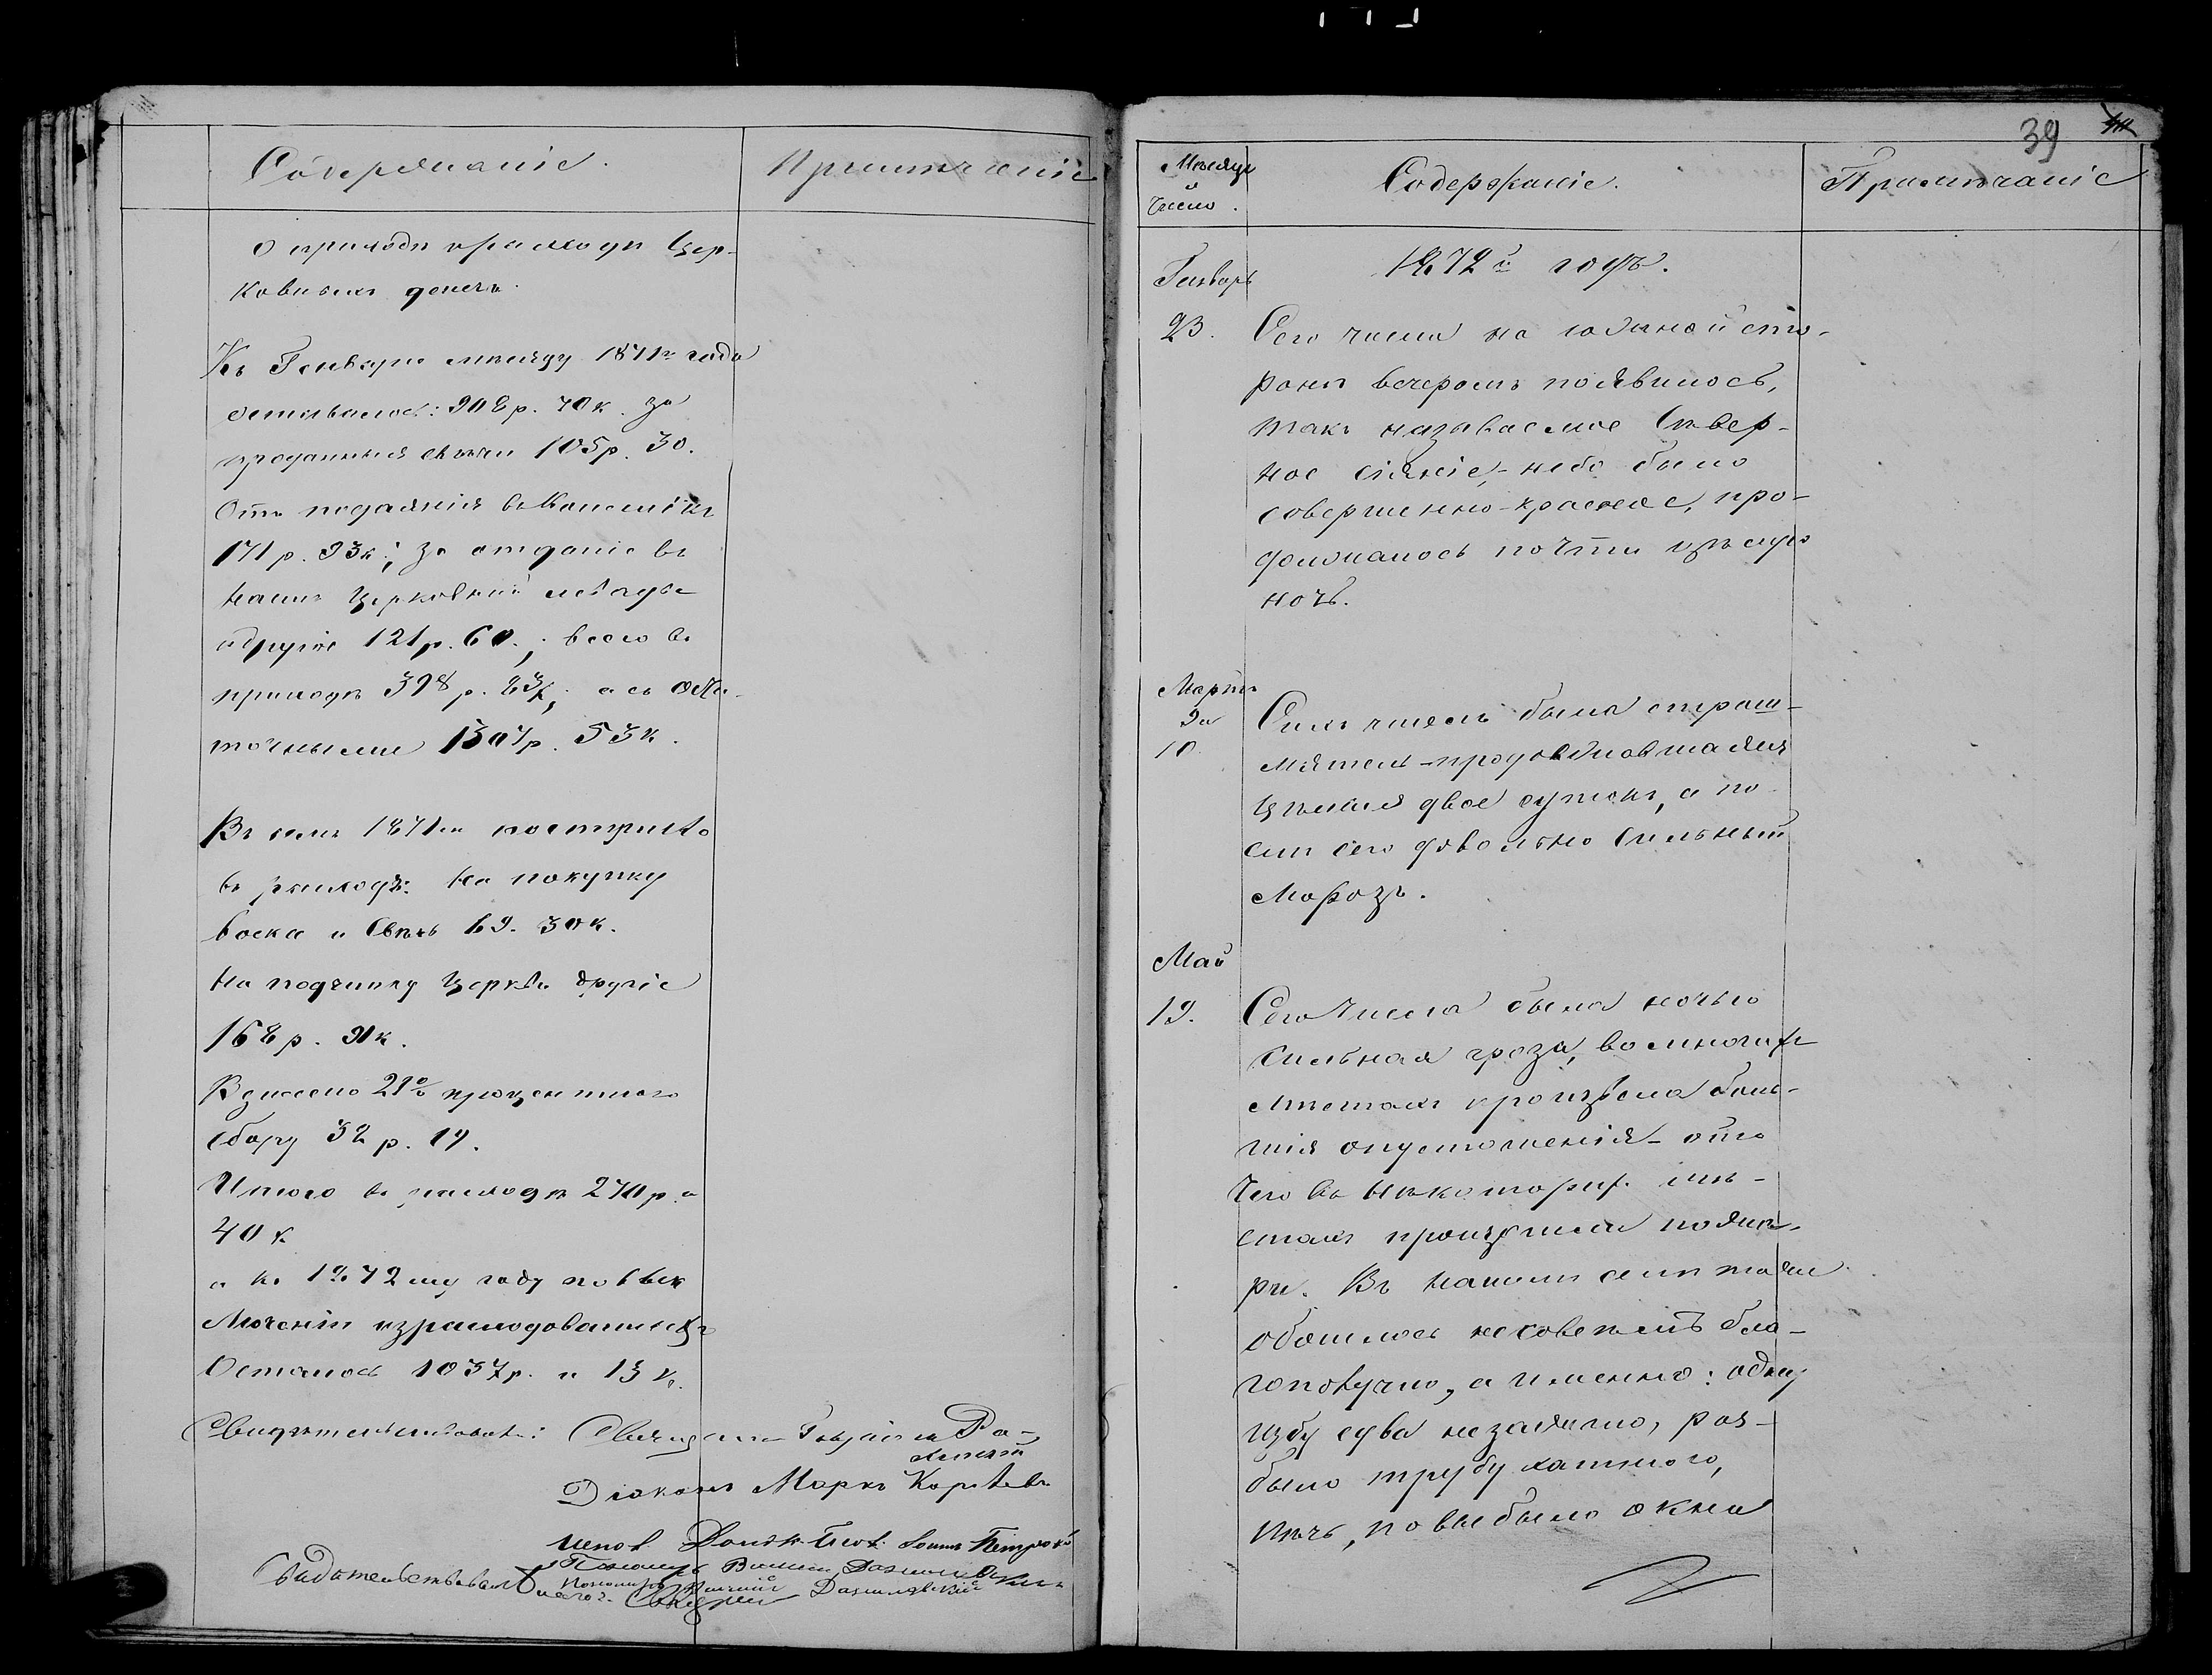 Содержаніе.
Примѣчаніе
О приходѣ и расходѣ Цер-
ковныхъ денегъ.
Къ Генварю мѣсяцу 1871го года
оставалось: 908 р. 70 к. За
проданныя свѣчи 105 р. 30.
Отъ подаянія въ
171 р. 93 к; За отданіе въ
наймъ Церковной левады
и другіе 121 р. 60.; всего въ
приходѣ 398 р. 83 к; а съ оста-
точными 1307 р. 53 к.
Въ семъ 1871м поступило
въ расходъ: На покупку
воска и Свѣчь 69. 30 к.
На починку Церкви другіе
168 р. 91 к.
Взнесено 21% процентнаго
сбору 32 р. 19.
Итого въ расходѣ 270 р. и
40 к
а къ 1872му году по Исклю-
ченіи израсходованныхъ
Осталось 1037 р. и 13 к.
Свидѣтельствовали: Священникъ
Діаконъ Маркъ
39
Мѣсяцъ
и
Число.
Содержаніе.
Примѣчаніе
Генварь
1872й годъ.
23. Сего числа на южной сто-
ронѣ вечеромъ появилось,
такъ называемое Сѣвер-
ное сіяніе,- небо было
совершенно-красное, про-
должалось почти цѣлую
ночь.
Мартъ
9 и
10.
Сихъ чиселъ была страш-
мятель-продолжавшаяся
цѣлыя двое сутокъ, а по-
слѣ сего довольно сильный
морозъ.
Май
19. Сего числа была ночью
сильная гроза, во многихъ
мѣстахъ произвела боль-
шія опустошенія- отъ
чего въ нѣкоторых. мѣ-
стахъ произошли пожа-
ры. Въ нашемъ селѣ также
обошлось не совсѣмъ бла-
гополучно, а именно: одну
избу едва не зажгло, раз-
было трубу хатнюю,
печь, повыбыло окна